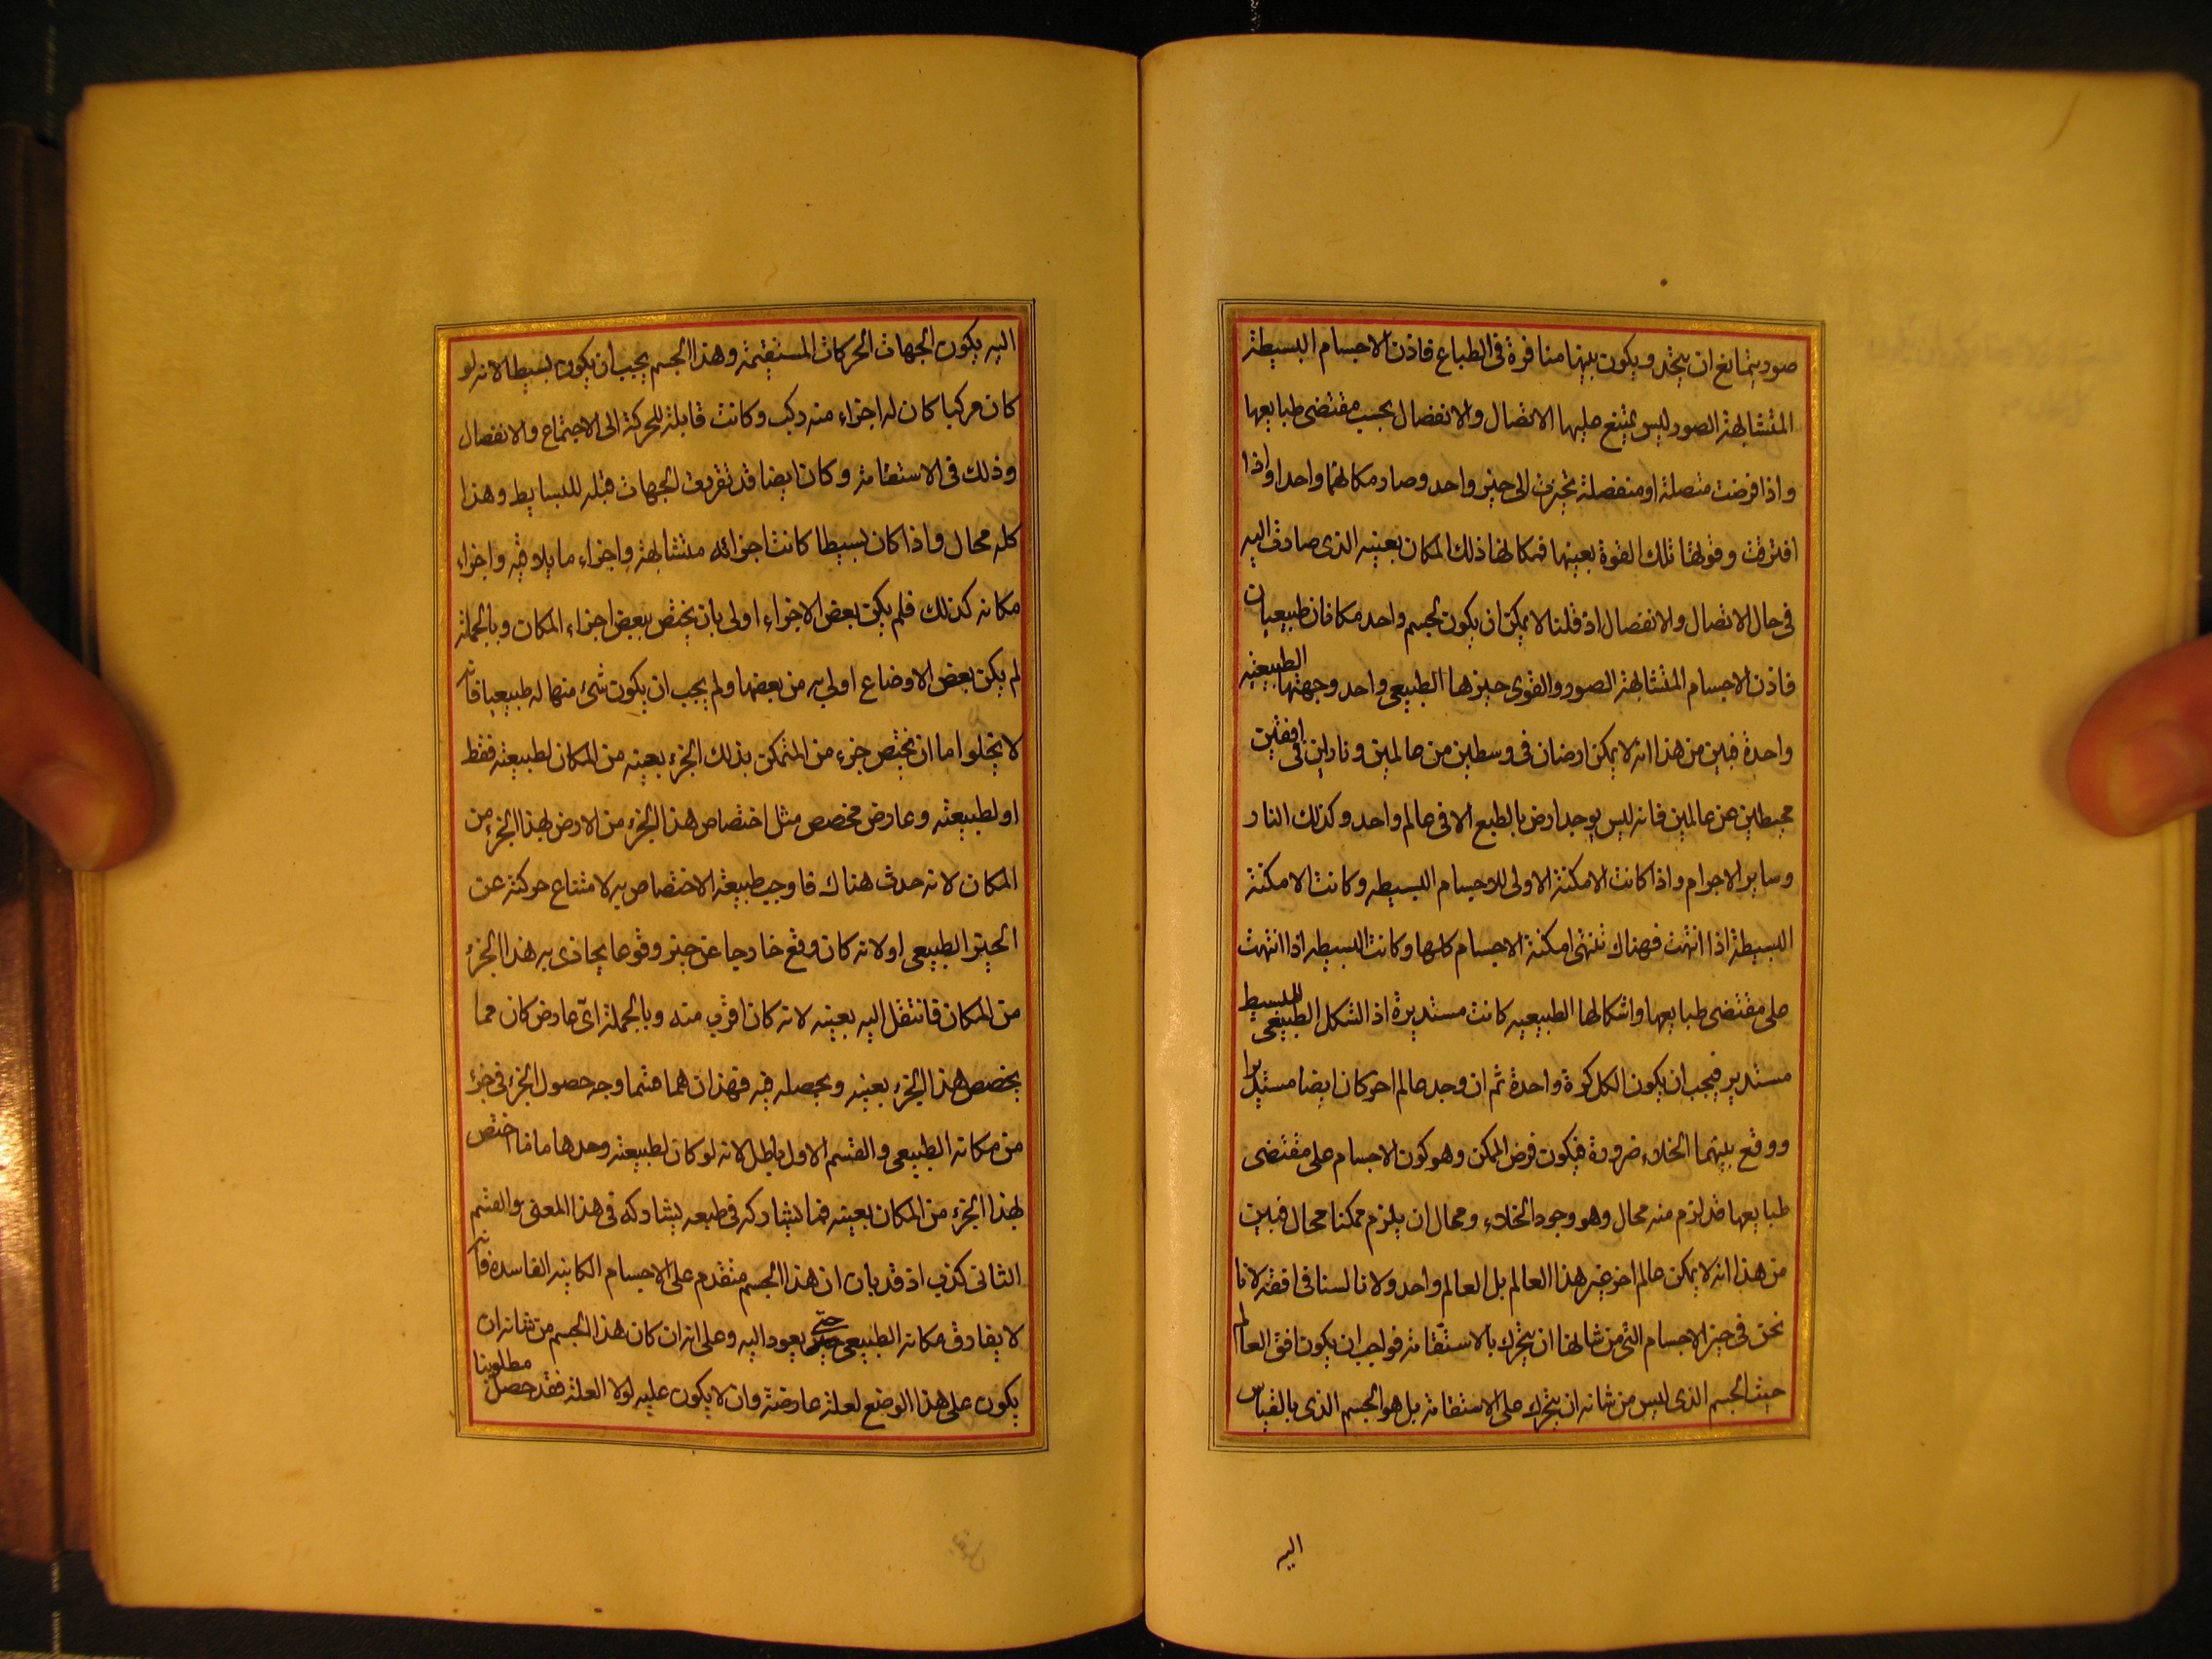 صور يمانع ان يتحد و يكون بينها منافرة فى الطباع فاذن الاجسام البسيطة
المتشابهة الصور ليس يمتنع عليها الاتصال والانفصال بحسب مقتضى طبايعها
واذا فرضت متصلة او منفصلة تحيزت الى حيز واحد وصار مكانهما واحدا واذا
افترقت وقولها تلك القوة بعينها فمكانها ذلك المكان بعينه الذى صادف اليه
فى حال الاتصال والانفصال اذ قلنا لا يمكن ان يكون لجسم واحد مكانان طبيعيان
فاذن الاجسام المتشابهة الصور والقوى حيزها الطبيعى واحد وجهتها الطبيعيه
واحدة فبين من هذا انه لا يمكن ارضان فى وسطين من عالمين و ناران فى افقين
محيطين عن عالمين فانه ليس يوجد ارض بالطبع الا فى عالم واحد وكذلك النار
وساير الاجرام واذا كانت الامكنة الاولى للاجسام البسيطه وكانت الامكنة
البسيطة اذا انتهت فهناك تنتهى امكنة الاجسام كلها وكانت البسيطه اذا انتهت
على مقتضى طبايعها واشكالها الطبيعيه كانت مستديرة اذ الشكل الطبيعى للبسيط
مستدير فيجب ان يكون الكل كرة واحدة ثم ان وجد عالم اخر كان ايضا مستديرا
ووقع بينهما الخلاء ضرورة فيكون فرض الممكن وهو كون الاجسام على مقتضى
طبايعها قد لزم منه محال وهو وجود الخلاء ومحال ان يلزم ممكنا محال فبين
من هذا انه لا يمكن عالم اخر غير هذا العالم بل العالم واحد ولانا لسنا فى افقه لانا
نحن فى حيز الاجسام التى من شانها ان يتحرك بالاستقامة فواجب ان يكون افق العالم
حيث الجسم الذى ليس من شانه ان يتحرك على الاستقامة بل هو الجسم الذى بالقياس
اليه
اليه يكون الجهات الحركات المستقيمة وهذا الجسم يجب ان يكون بسيطا لانه لو
كان مركبا كان له اجزاء منه ركب وكانت قابلة للحركة الى الاجتماع والانفصال
وذلك فى الاستقامة وكان ايضا قد تقررت الجهات قبله للبسايط وهذا
كله محال واذا كان بسيطا كانت اجزائه متشابهة واجزاء ما يلاقيه واجزاء
مكانه كذلك فلم يكن بعض الاجزاء اولى بان يختص ببعض اجزاء المكان وبالجملة
لم يكن بعض الاوضاع اولى به من بعضها ولم يجب ان يكون شئ منها له طبيعيا فانه
لا يخلوا اما ان يختص جزء من المتمكن بذلك الجزء بعينه من المكان لطبيعته فقط
او لطبيعته وعارض مخصص مثل اختصاص هذا الجزء من الارض لهذا الجزء من
المكان لانه حدث هناك فاوجب طبيعته الاختصاص به لامتناع حركته عن
الحيز الطبيعى او لانه كان وقع خارجا عن حيزه وقوعا يحاذى به هذا الجزء
من المكان فانتقل اليه بعينه لانه كان اقرب منه وبالجملة اى عارض كان مما
يخصص هذا الجزء بعينه ويحصله فيه فهذان هما قسما وجه حصول الجزء فى جزء
من مكانه الطبيعى والقسم الاول باطل لانه لو كان لطبيعته وحدها ما اختص
لهذا الجزء من المكان بعينه فما يشاركه فى طبعه يشاركه فى هذا المعنى والقسم
الثانى كذب اذ قد بان ان هذا الجسم متقدم على الاجسام الكاينه الفاسده فانه
لا يفارق مكانه الطبيعى حتى يعود اليه وعلى انه ان كان هذا الجسم من شانه ان
يكون على هذا الوضع لعلة عارضة وان لا يكون عليه لولا العلة فقد حصل مطلوبنا